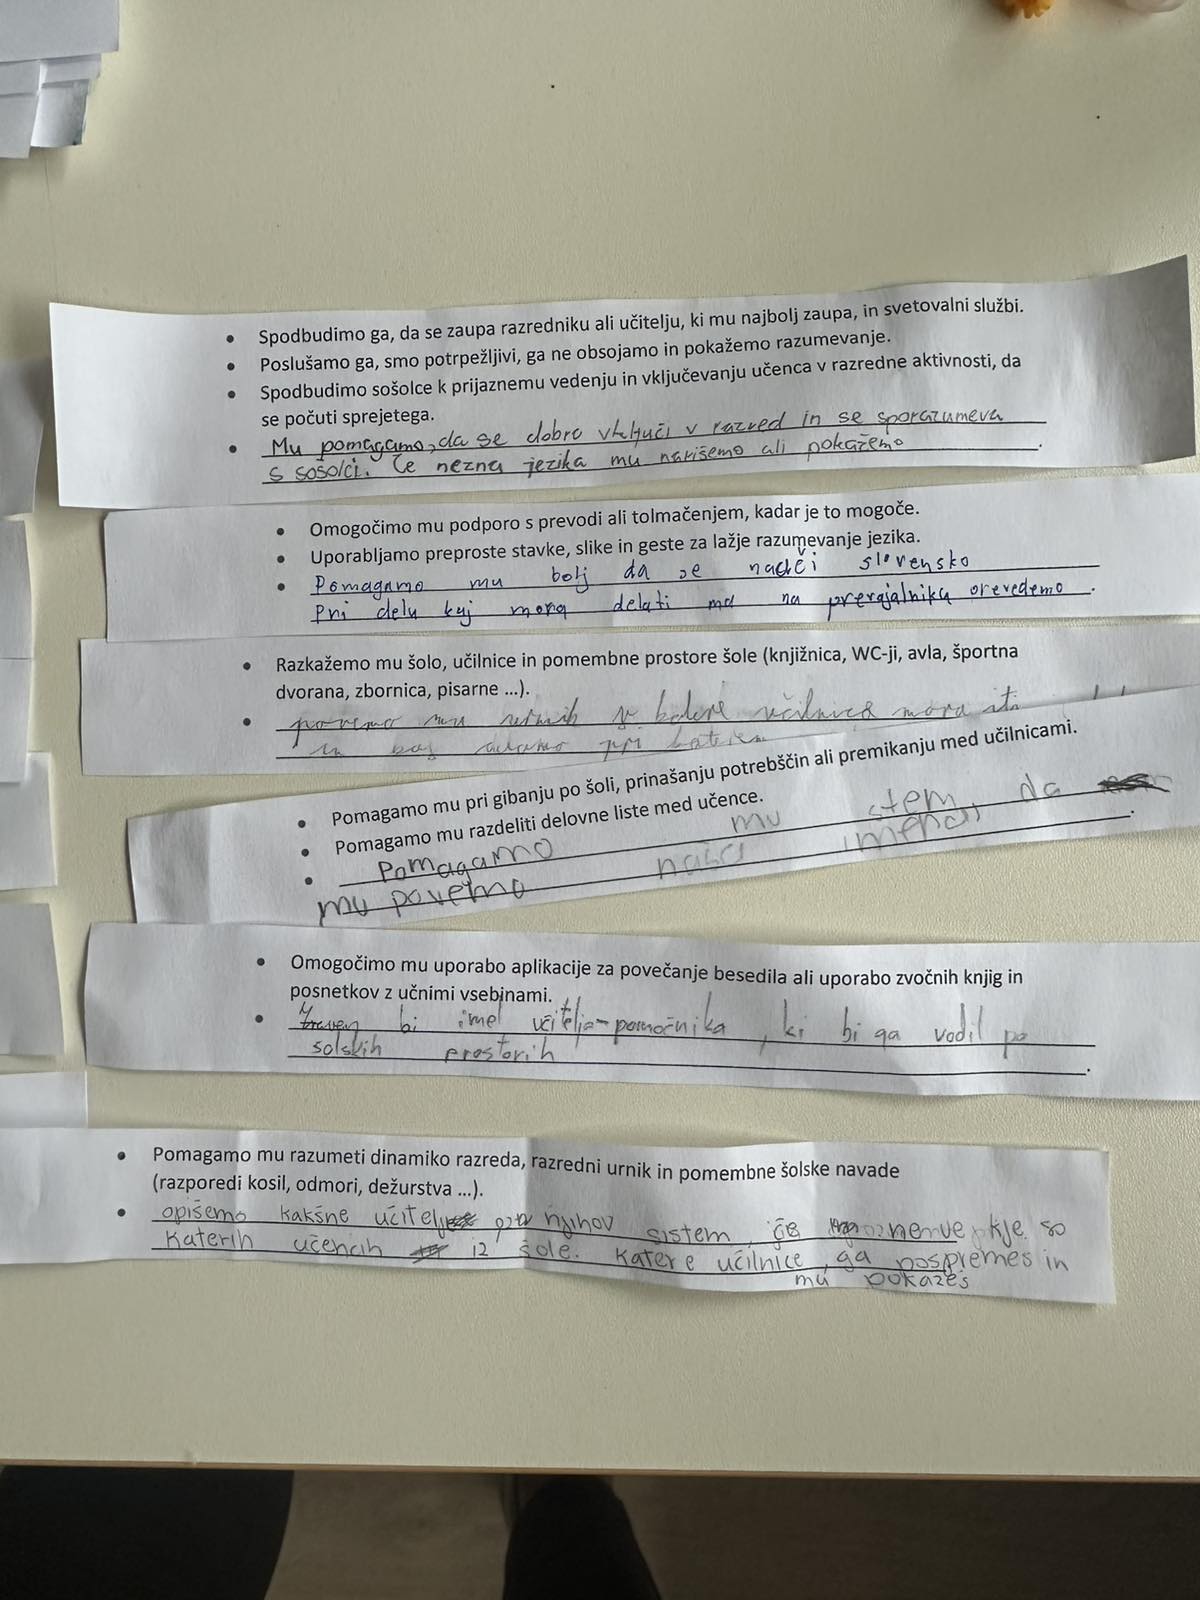 • Spodbudimo ga, da se zaupa razredniku ali učitelju, ki mu najbolj zaupa, in svetovalni službi.
• Poslušamo ga, smo potrpežljivi, ga ne obsojamo in pokažemo razumevanje.
• Spodbudimo sošolce k prijaznemu vedenju in vključevanju učenca v razredne aktivnosti, da
se počuti sprejetega.
• Mu pomagamo, da se dobro vključi v razred in se sporazumeva
s sošolci. Če nezna jezika mu narišemo ali pokažemo.
• Omogočimo mu podporo s prevodi ali tolmačenjem, kadar je to mogoče.
• Uporabljamo preproste stavke, slike in geste za lažje razumevanje jezika.
• Pomagamo mu bolj da se nauči slovensko
Pri delu kaj mora delati na prevedemo.
• Razkažemo mu šolo, učilnice in pomembne prostore šole (knjižnica, WC-ji, avla, športna
dvorana, zbornica, pisarne ...).
• povemo mu urnik v katere učilnice mora iti
in kaj delamo pri katerem
• Pomagamo mu pri gibanju po šoli, prinašanju potrebščin ali premikanju med učilnicami.
• Pomagamo mu razdeliti delovne liste med učence.
• Pomagamo mu stem, da
mu povemo naša imena.
• Omogočimo mu uporabo aplikacije za povečanje besedila ali uporabo zvočnih knjig in
posnetkov z učnimi vsebinami.
• bi imel učitelja-pomočnika, ki bi ga vodil po
šolskih prostorih.
• Pomagamo mu razumeti dinamiko razreda, razredni urnik in pomembne šolske navade
(razporedi kosil, odmori, dežurstva ...).
• opišemo kakšne njihov sistem, kje so
katerih učencih iz šole. Katere učilnice, ga pospremeš in
mu pokažeš